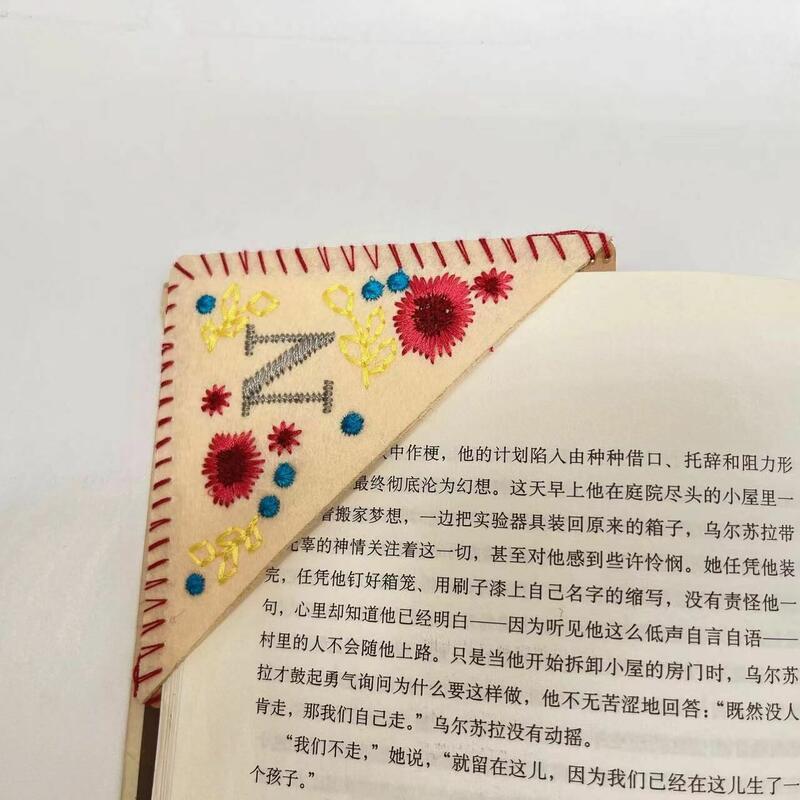 N
中作梗，他的计划陷入由种种借口、托辞和阻力形
最终彻底沦为幻想。这天早上他在庭院尽头的小屋里一
着搬家梦想，一边把实验器具装回原来的箱子，乌尔苏拉带
无辜的神情关注着这一切，甚至对他感到些许怜悯。她任凭他装
完，任凭他钉好箱笼、用刷子漆上自己名字的缩写，没有责怪他一
句，心里却知道他已经明白——因为听见他这么低声自言自语——
村里的人不会随他上路。只是当他开始拆卸小屋的房门时，乌尔苏
拉才鼓起勇气询问为什么要这样做，他不无苦涩地回答：“既然没人
肯走，那我们自己走。”乌尔苏拉没有动摇。
“我们不走，”她说，“就留在这儿，因为我们已经在这儿生了一
个孩子。”